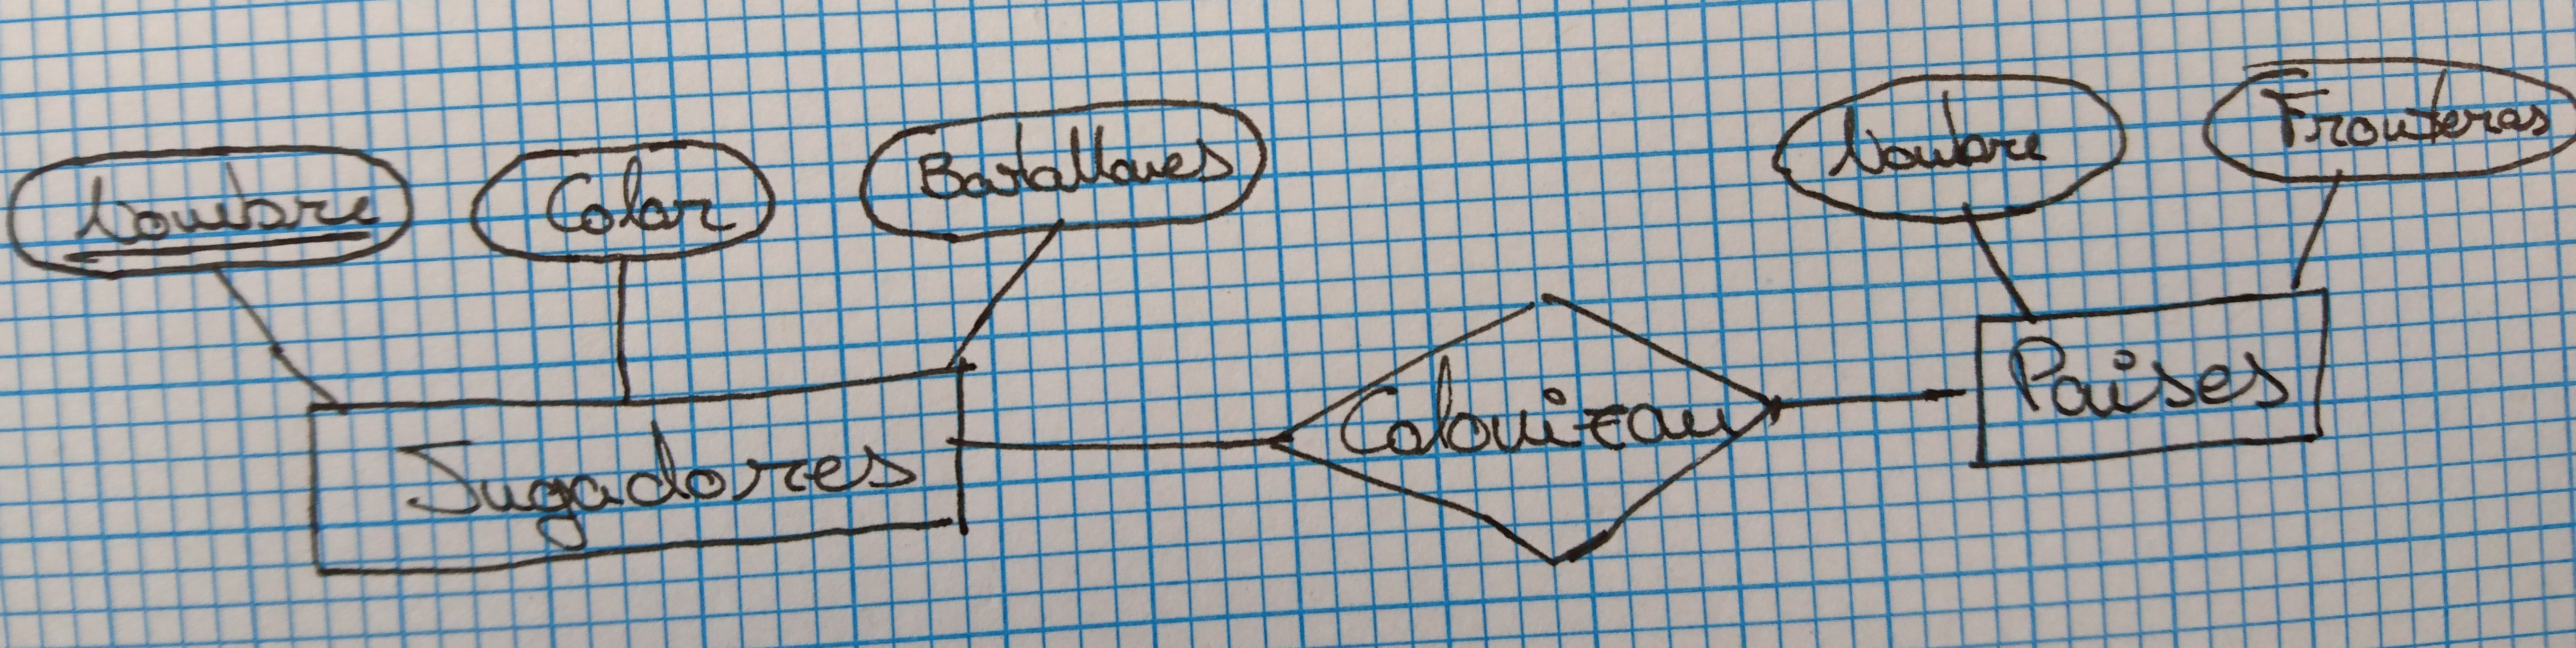 Nombre
Color
Batallones
Nombre
Fronteras
Jugadores
Colonizan
Paises